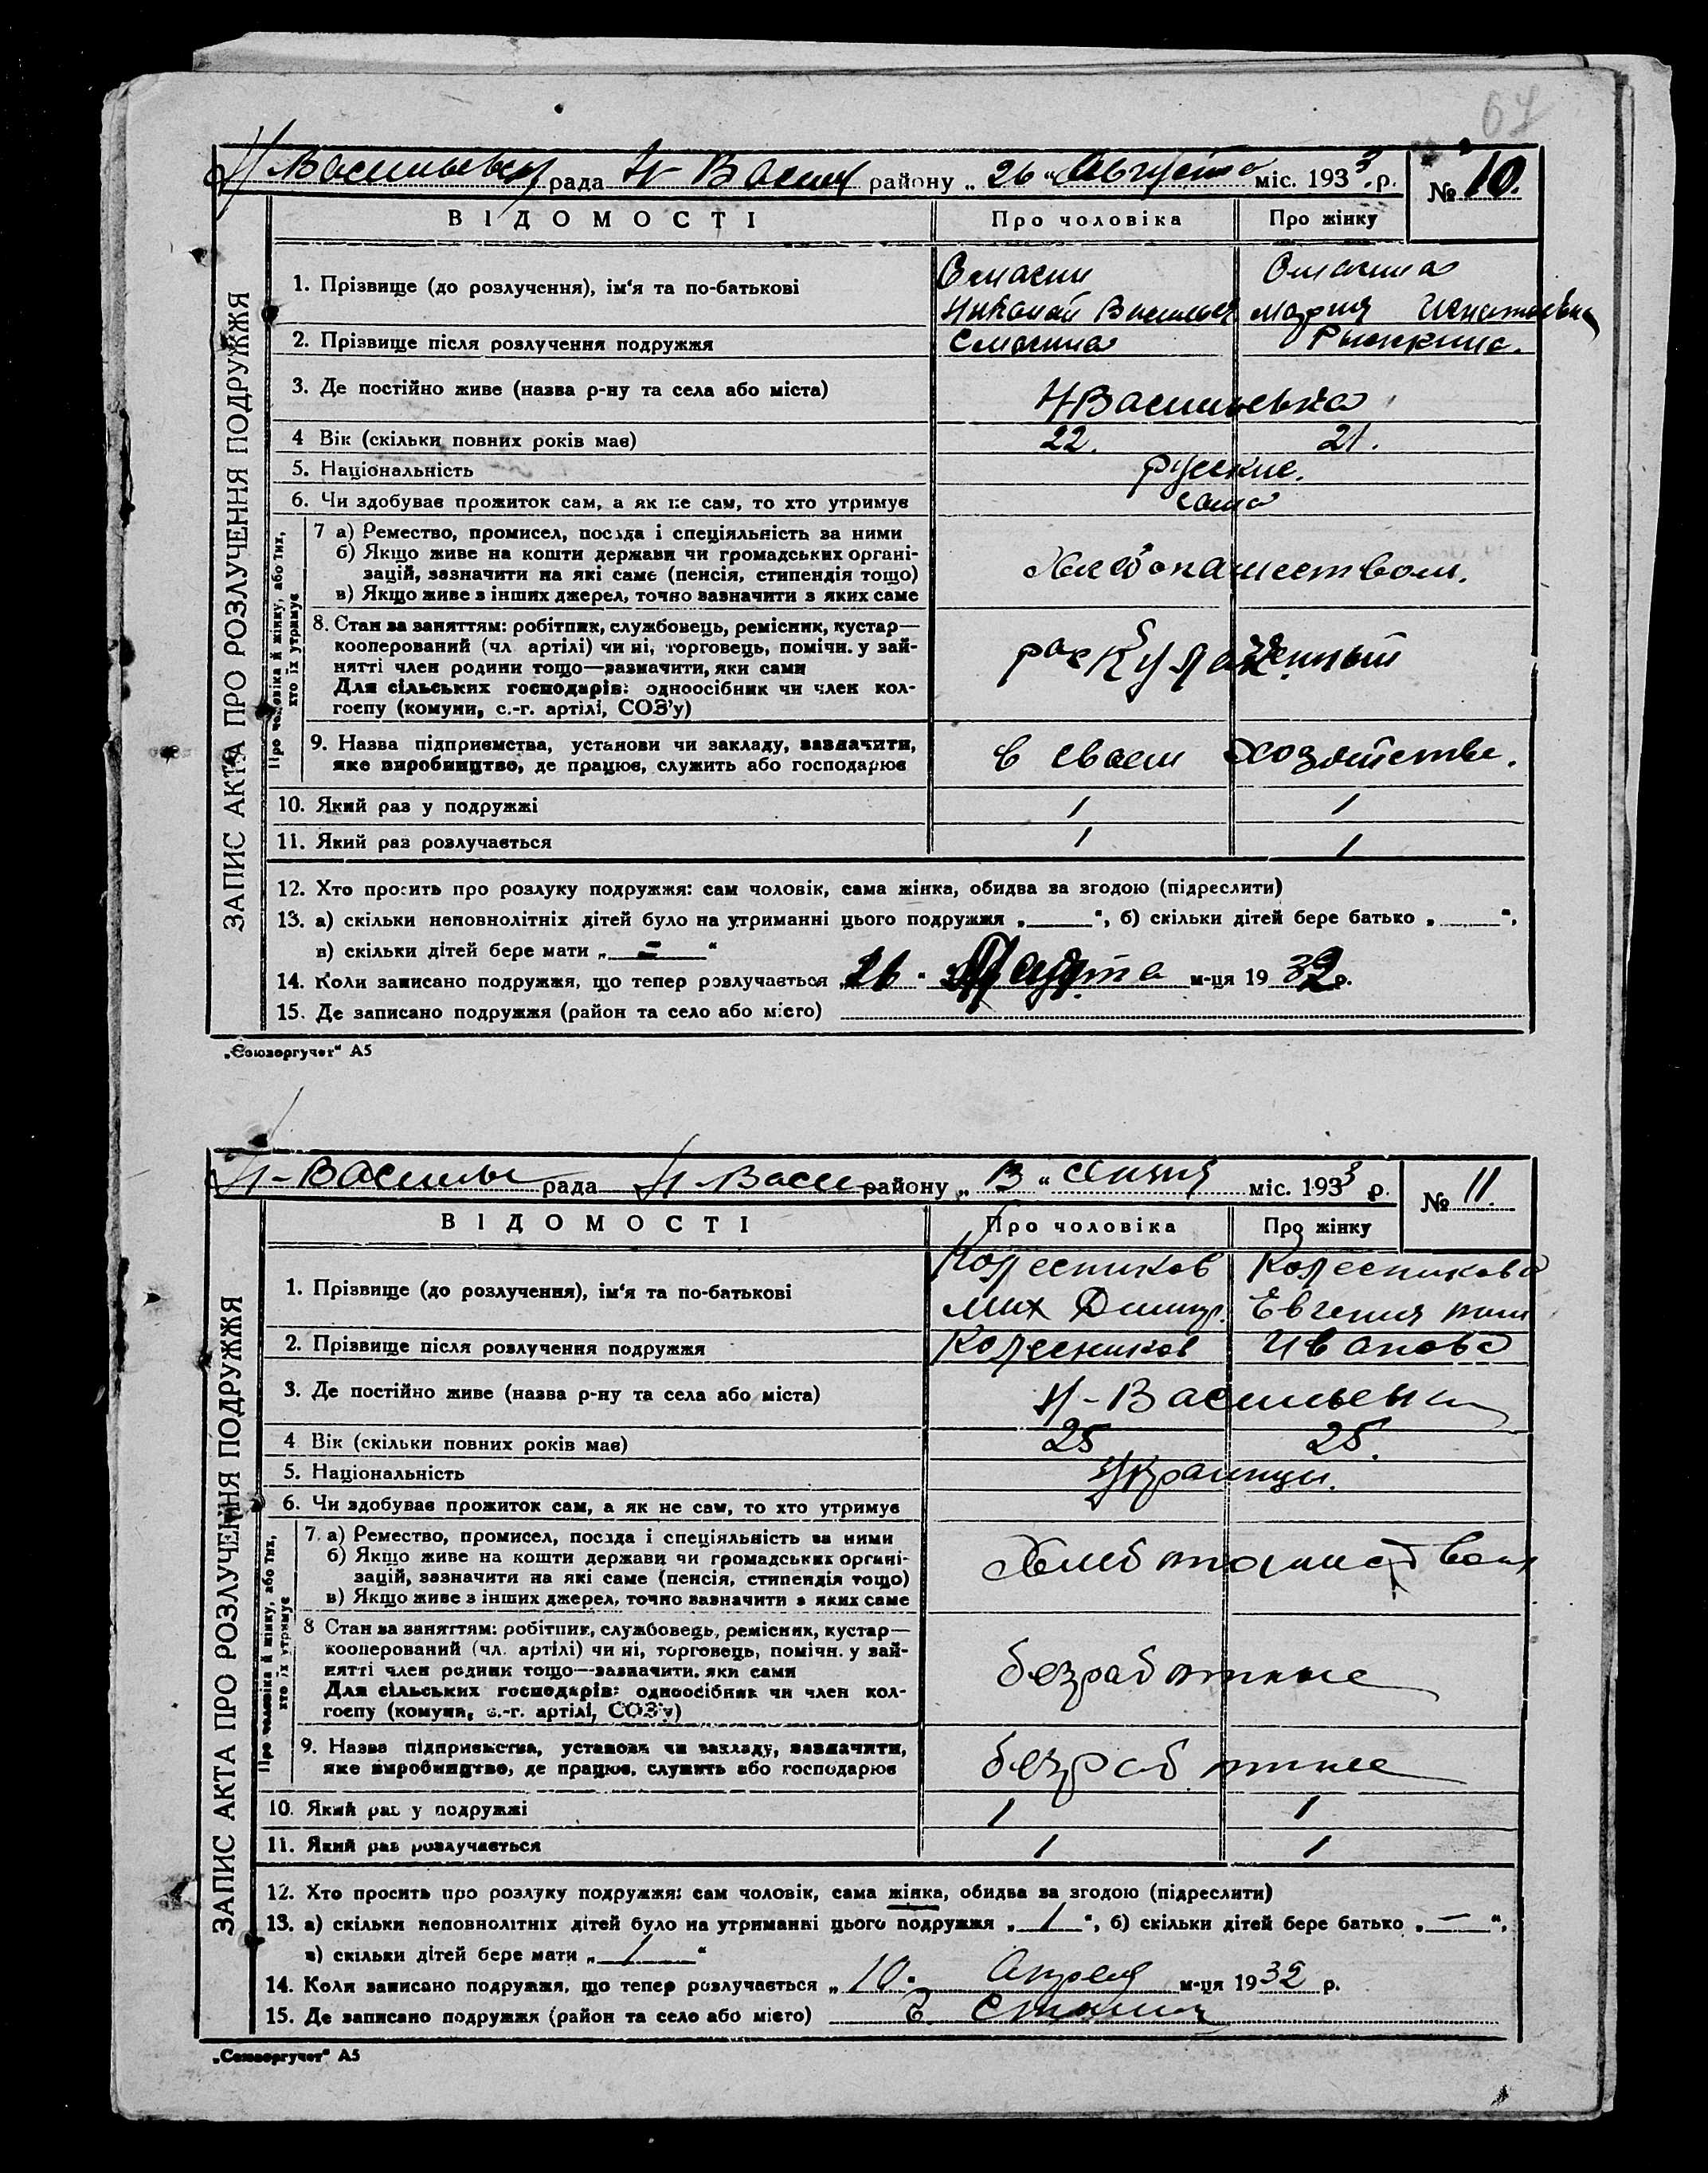 67
Н Васильевск рада Н Васил району „ 26 “ Августа міс. 1933 р. № 10.
ЗАПИС АКТА ПРО РОЗЛУЧЕННЯ ПОДРУЖЖЯ
ВІДОМОСТІ Про чоловіка Про жінку
1. Прізвище (до розлучення), ім‘я та по-батькові
Смагин Смагина
Николай Василье Мария Игнатьевна
2. Прізвище після розлучення подружжя Смагина
3. Де постійно живе (назва р-ну та села або міста) Н Васильевка
4 Вік (скільки повних років має) 22. 21.
5. Національність русские.
6. Чи здобуває прожиток сам, а як не сам, то хто утримує сами
Про чоловіка й жінку, або тих, хто їх утримує
7 а) Ремество, промисел, посада і спеціяльність за ними
б) Якщо живе на кошти держави чи громадських органі-
зацій, зазначити на які саме (пенсія, стипендія тощо)
в) Якщо живе з інших джерел, точно зазначити з яких саме
Хлебопашеством.
8. Стан за заняттям: робітник, службовець, ремісник, кустар—
кооперований (чл. артілі) чи ні, торговець, помічн. у зай-
нятті член родини тощо—зазначити, яки сами
Для сільських господарів: одноосібник чи член кол-
госпу (комуни, с.-г. артілі, СОЗ’у)
раскулаченный
9. Назва підприємства, установи чи закладу, зазначити,
яке виробництво, де працює, служить або господарює
в своем хозяйстве.
10. Який раз у подружжі 1 1
11. Який раз розлучається 1 1
12. Хто просить про розлуку подружжя: сам чоловік, сама жінка, обидва за згодою (підреслити)
13. а) скільки неповнолітніх дітей було на утриманні цього подружжя „ “, б) скільки дітей бере батько „ “,
в) скільки дітей бере мати „ = “
14. Коли записано подружжя, що тепер розлучається „ 26 “ м-ця 19 32 р.
15. Де записано подружжя (район та село або місто)
„Союзоргучет“ А5
Н-Василь рада Н-Васи району „ 13 “ міс. 1933 р. № 11.
ЗАПИС АКТА ПРО РОЗЛУЧЕННЯ ПОДРУЖЖЯ
ВІДОМОСТІ Про чоловіка Про жінку
1. Прізвище (до розлучення), ім‘я та по-батькові
Колесников Колесникова
Мих Димитр. Евгения
2. Прізвище після розлучення подружжя Колесников Иванова
3. Де постійно живе (назва р-ну та села або міста) Н-Васильевка
4 Вік (скільки повних років має) 25 25.
5. Національність Украинцы.
6. Чи здобуває прожиток сам, а як не сам, то хто утримує
Про чоловіка й жінку, або тих, хто їх утримує
7. а) Ремество, промисел, посада і спеціяльність за ними
б) Якщо живе на кошти держави чи громадських органі-
зацій, зазначити на які саме (пенсія, стипендія тощо)
в) Якщо живе з інших джерел, точно зазначити з яких саме
Хлебопашеством
8 Стан за заняттям: робітник, службовець, ремісник, кустар—
кооперований (чл. артілі) чи ні, торговець, помічн. у зай-
нятті член родини тощо—зазначити, яки сами
Для сільських господарів: одноосібник чи член кол-
госпу (комуни, с.-г. артілі, СОЗ’у)
безработные
9. Назва підприємства, установи чи закладу, зазначити,
яке виробництво, де працює, служить або господарює
безработные
10. Який раз у подружжі 1 1
11. Який раз розлучається 1 1
12. Хто просить про розлуку подружжя: сам чоловік, сама жінка, обидва за згодою (підреслити)
13. а) скільки неповнолітніх дітей було на утриманні цього подружжя „ 1 “, б) скільки дітей бере батько „ — “,
в) скільки дітей бере мати „ 1 “
14. Коли записано подружжя, що тепер розлучається „ 10 “ Апреля м-ця 19 32 р.
15. Де записано подружжя (район та село або місто)
„Союзоргучет“ А5